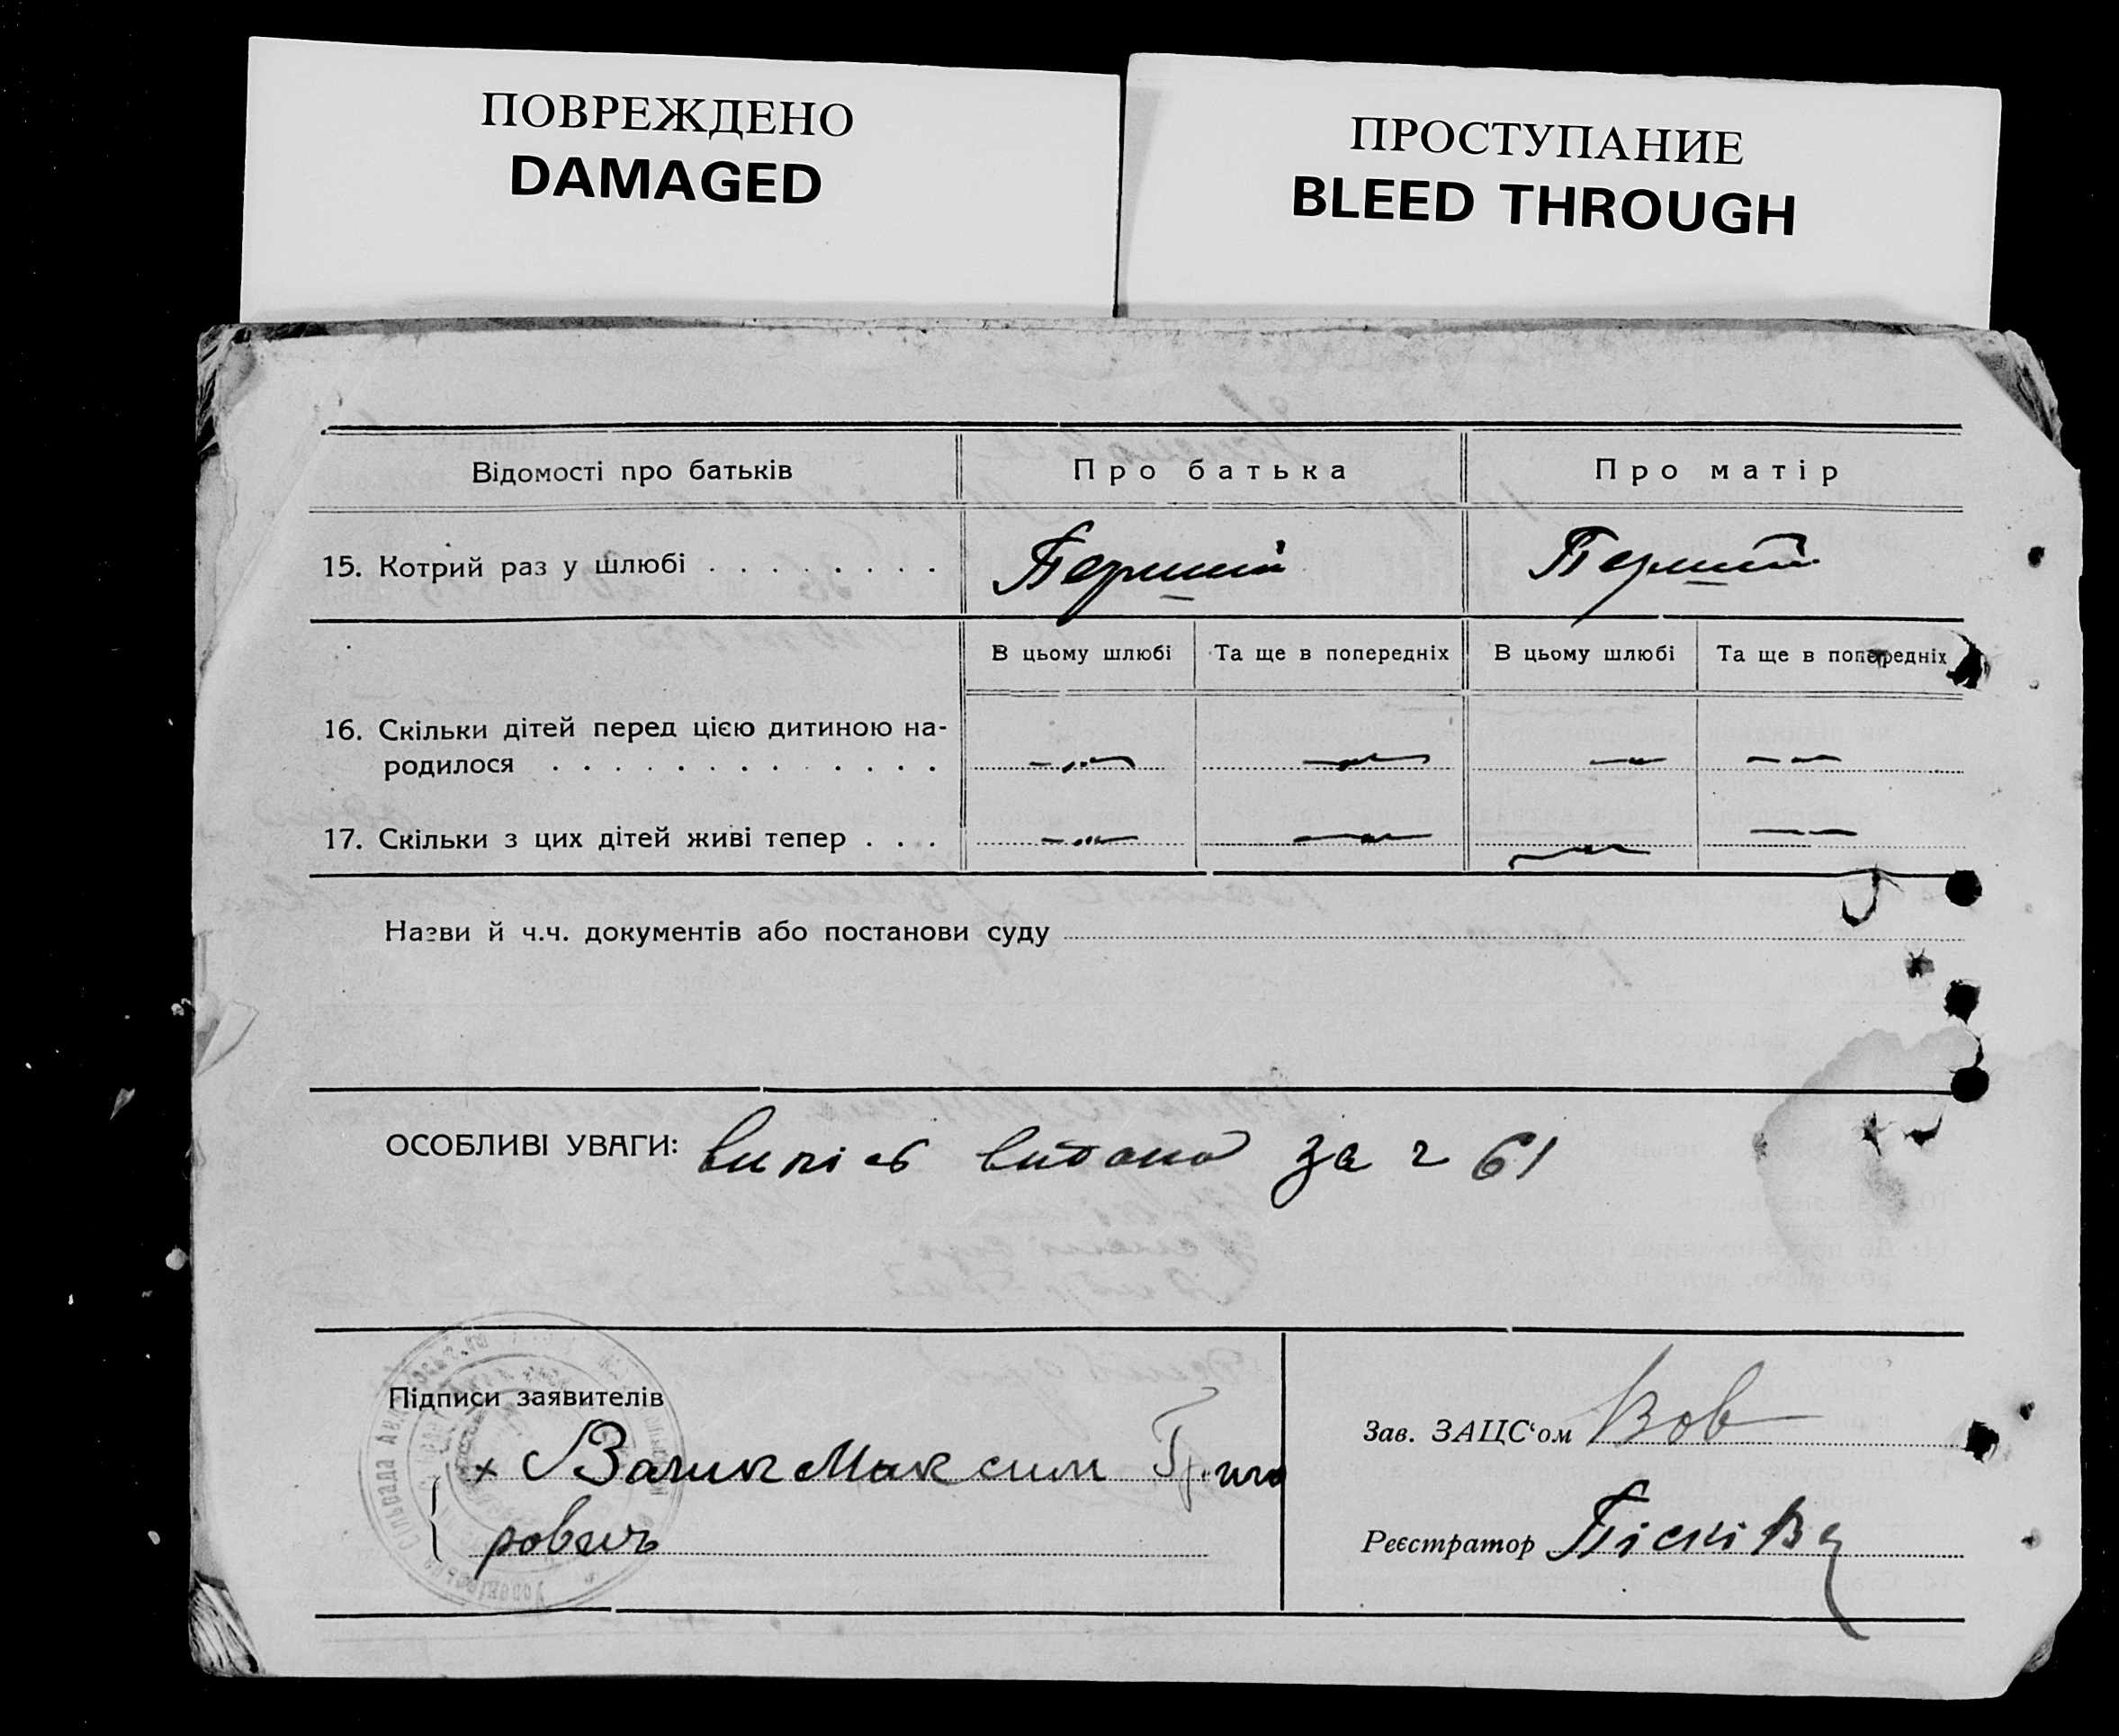 ПОВРЕЖДЕНО
DAMAGED
ПРОСТУПАНИЕ
BLEED THROUGH
Відомості про батьків
Про батька
Про матір
15. Котрий раз у шлюбі . . . . . . . .
Перший
Перший
В цьому шлюбі
Та ще в попередніх
В цьому шлюбі
Та ще в попередніх
16. Скільки дітей перед цією дитиною на-
родилося . . . . . . . . . . . . .
17. Скільки з цих дітей живі тепер . . .
Назви й ч.ч. документів або постанови суду
ОСОБЛИВІ УВАГИ: випіс видано за ч 61
Підписи заявителів
х Валик Максим Григо
рович
Зав. ЗАЦС'ом Вов
Реєстратор
сільрада